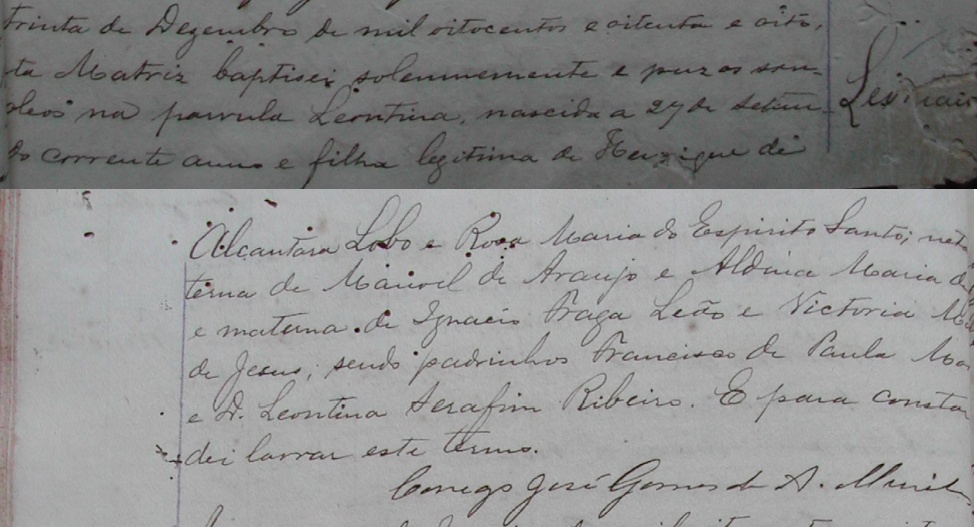 trinta de Dezembro de mil oitocentos e oitenta e oito,
ta Matriz baptisei solemnemente e puz os san-
oleos na parvula Leontina, nascida a 27 de Setem-
do corrente anno e filha legitima de Henrique de
Alcantara Lobo e Rosa Maria do Espirito Santo; net
terna de Manoel de Araujo e Aldina Maria d
e materna de Ignacio Fraga Leão e Victoria M
de Jesus; sendo padrinhos Francisco de Paula Mo
e D. Leontina Serafim Ribeiro. E para consta
dei lavrar este termo.
Conego José Gomes de A.